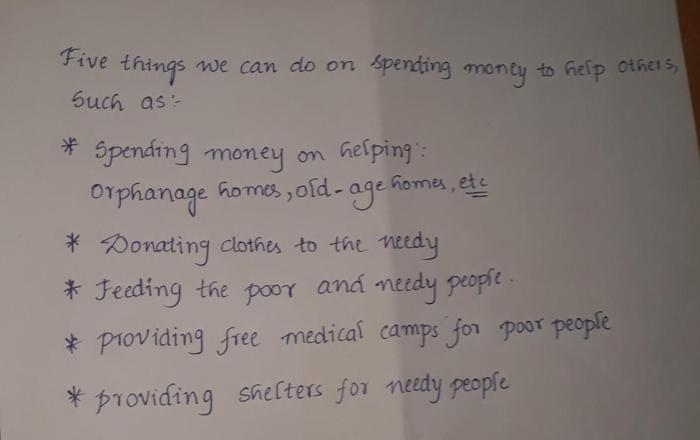 Five things we can do on spending money to help others,
Such as:-
* Spending money on helping:
Orphanage homes, old-age homes, etc
* Donating clothes to the needy
* Feeding the poor and needy people.
* providing free medical camps for poor people
* providing shelters for needy people